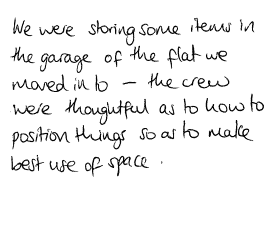 We were storing some items in
the garage of the flat we
moved in to – the crew
were thoughtful as to how to
position things so as to make
best use of space.